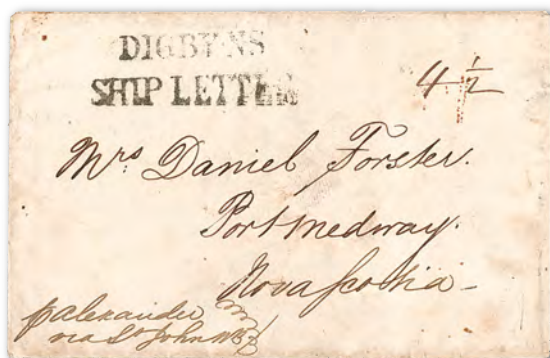 DIGBY NS
SHIP LETTER
4 1/2
Mrs Daniel Forster.
Port medway.
Nova Scotia -
p alexander
via St John NB